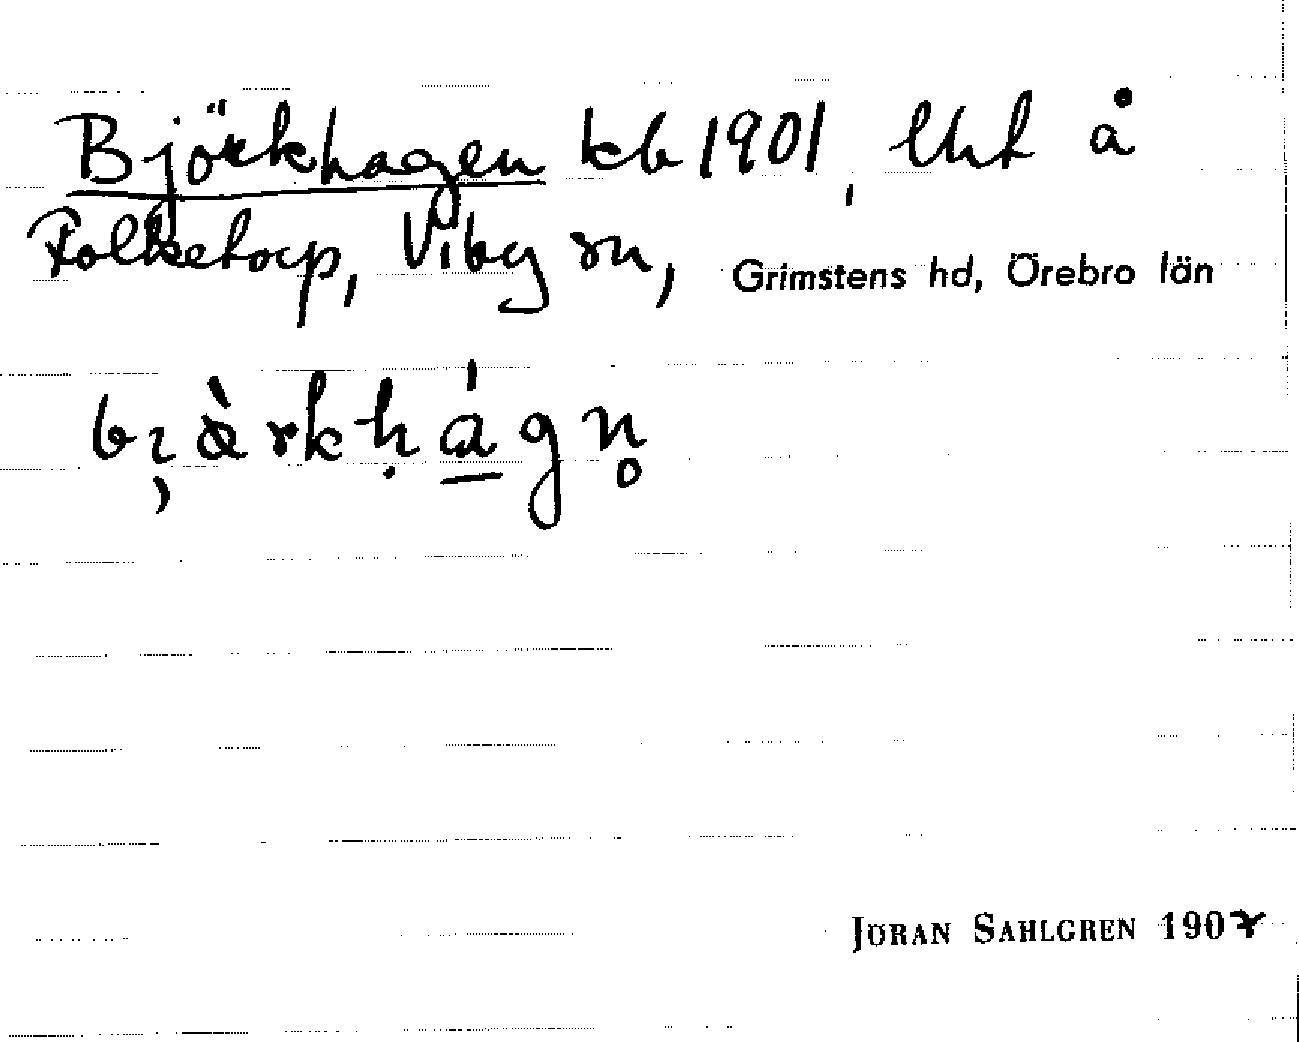 Björkhagen kb 1901, lht å
Folketorp, Viby sn, Grimstens hd, Örebro län
JÖRAN SAHLGREN 1907